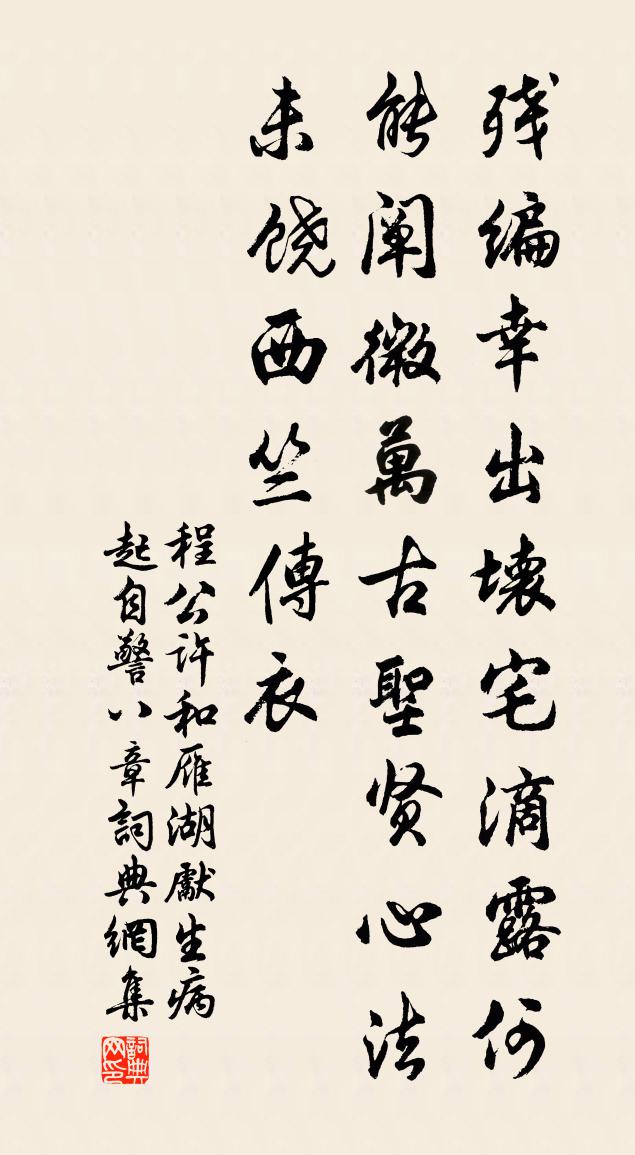 残编幸出壊宅滴露何
能阐微萬古聖贤心法
未饶西竺傳衣
程公许和雁湖獻生病
起自警八章詞典網集
詞典网印